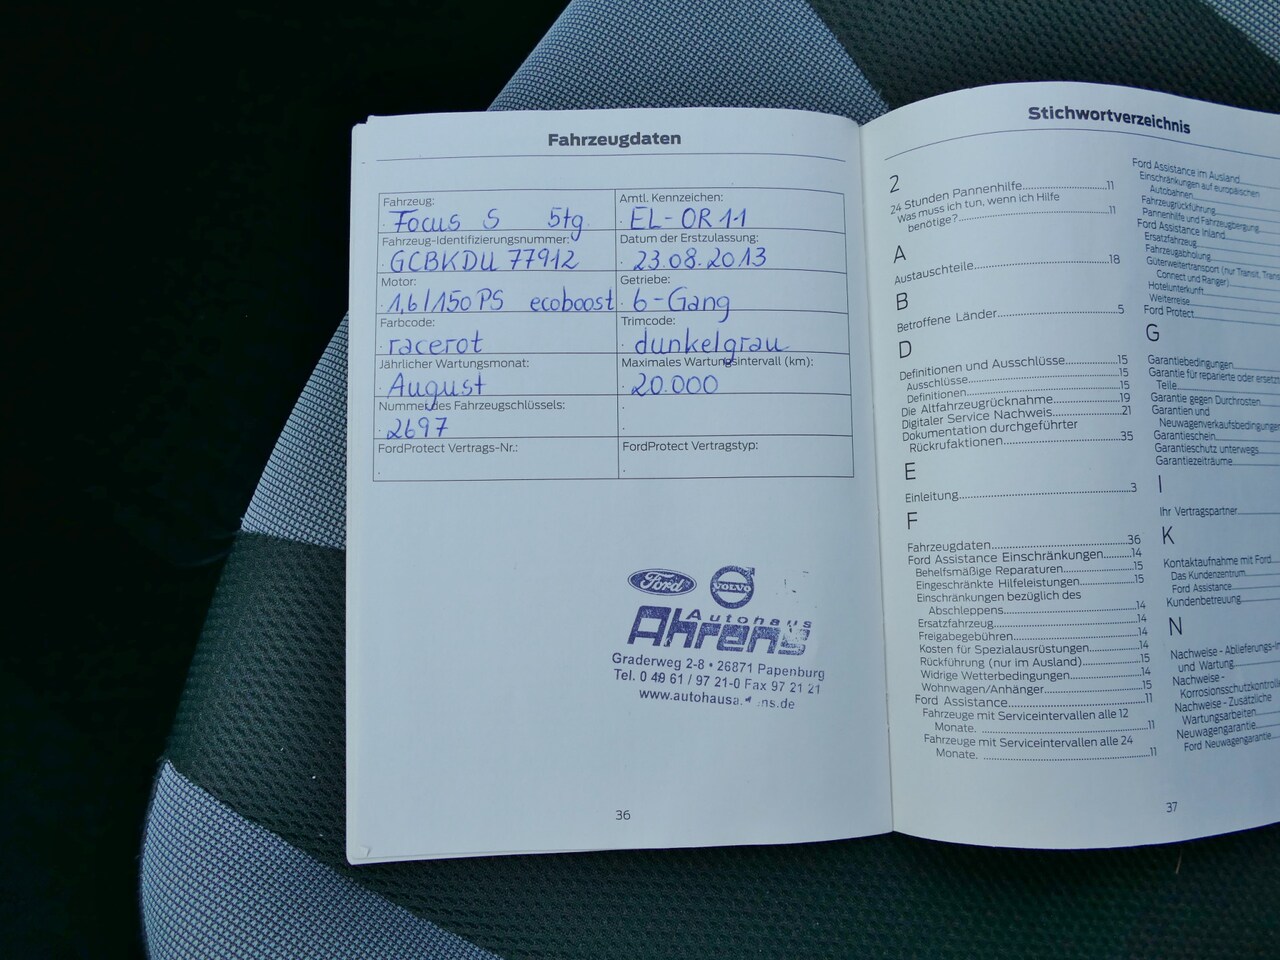 Fahrzeugdaten
Fahrzeug:
Focus S 5tg.
Amtl. Kennzeichen:
EL-OR 11
Fahrzeug-Identifizierungsnummer:
GCBKDU 77912
Datum der Erstzulassung:
23.08.2013
Motor:
1,6 l/150 PS ecoboost
Getriebe:
6-Gang
Farbcode:
racerot
Trimcode:
dunkelgrau
Jährlicher Wartungsmonat:
August
Maximales Wartungsintervall (km):
20.000
Nummer des Fahrzeugschlüssels:
2697
FordProtect Vertrags-Nr.:
FordProtect Vertragstyp:
Ford
VOLVO
Autohaus
Ahrens
Graderweg 2-8 • 26871 Papenburg
Tel. 0 49 61 / 97 21-0 Fax 97 21 21
36
Stichwortverzeichnis
2
24 Stunden Pannenhilfe...11
Was muss ich tun, wenn ich Hilfe
benötige?...11
A
Austauschteile...18
B
Betroffene Länder...5
D
Definitionen und Ausschlüsse...15
Ausschlüsse...15
Definitionen...15
Die Altfahrzeugrücknahme...19
Digitaler Service Nachweis...21
Dokumentation durchgeführter
Rückrufaktionen...35
E
Einleitung...3
F
Fahrzeugdaten...36
Ford Assistance Einschränkungen...14
Behelfsmäßige Reparaturen...15
Eingeschränkte Hilfeleistungen...15
Einschränkungen bezüglich des
Abschleppens...14
Ersatzfahrzeug...14
Freigabegebühren...14
Kosten für Spezialausrüstungen...14
Rückführung (nur im Ausland)...15
Widrige Wetterbedingungen...14
Wohnwagen/Anhänger...15
Ford Assistance...11
Fahrzeuge mit Serviceintervallen alle 12
Monate. ...11
Fahrzeuge mit Serviceintervallen alle 24
Monate. ...11
Ford Assistance im Ausland
Einschränkungen auf europäischen
Autobahnen
Fahrzeugrückführung
Pannenhilfe und Fahrzeugbergung
Ford Assistance Inland
Ersatzfahrzeug
Fahrzeugabholung
Güterweitertransport (nur Transit,
Connect und Ranger)
Hotelunterkunft
Weiterreise
Ford Protect
G
Garantiebedingungen
Garantie für reparierte oder
Teile
Garantie gegen Durchrosten
Garantien und
Neuwagenverkaufsbedingungen
Garantieschein
Garantieschutz unterwegs
Garantiezeiträume
I
Ihr Vertragspartner
K
Kontaktaufnahme mit Ford
Das Kundenzentrum
Ford Assistance
Kundenbetreuung
N
Nachweise - Ablieferungs-
und Wartung
Nachweise -
Korrosionsschutzkontrolle
Nachweise - Zusätzliche
Wartungsarbeiten
Neuwagengarantie
Ford Neuwagengarantie
37